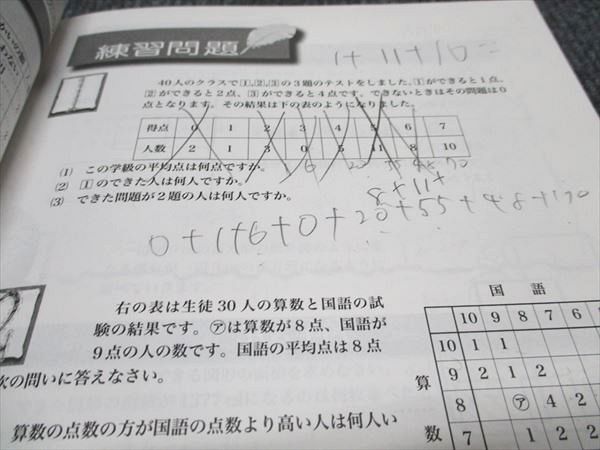 練習問題
1+11+10=
40人のクラスで1,2,3の3題のテストをしました。1ができると1点、
2ができると2点、3ができると4点です。できないときはその問題は0
点となります。その結果は下の表のようになりました。
得点 0 1 2 3 4 5 6 7
人数 2 1 3 0 5 11 8 10
(1) この学級の平均点は何点ですか。
(2) 1のできた人は何人ですか。
(3) できた問題が2題の人は何人ですか。
8+11+
0+1+6+0+20+55+48+170
右の表は生徒30人の算数と国語の試
験の結果です。㋐は算数が8点、国語が
9点の人の数です。国語の平均点は8点
次の問いに答えなさい。
算数の点数の方が国語の点数より高い人は何人い
国語
10 9 8 7 6
10 1 1
9 2 1 2
8 ㋐ 4 2
7 1 2 2
算
数